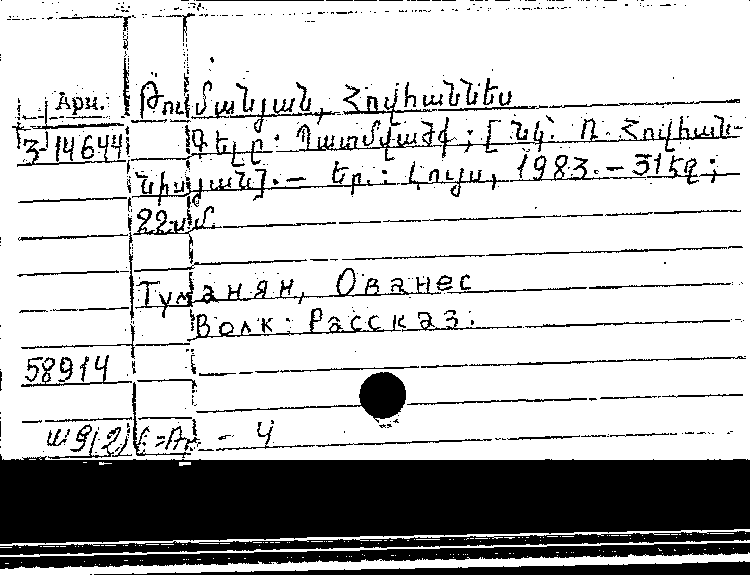 Арм. Թումանյան, Հովհաննես
3-14644 Գելը: Պատմվածք; [Նկ. Ռ. Հովհան-
նիսյան]. — Եր.: Լույս, 1983. — 31 էջ;
22սմ.
Туманян, Ованес
Волк: Рассказ.
58914
- 4